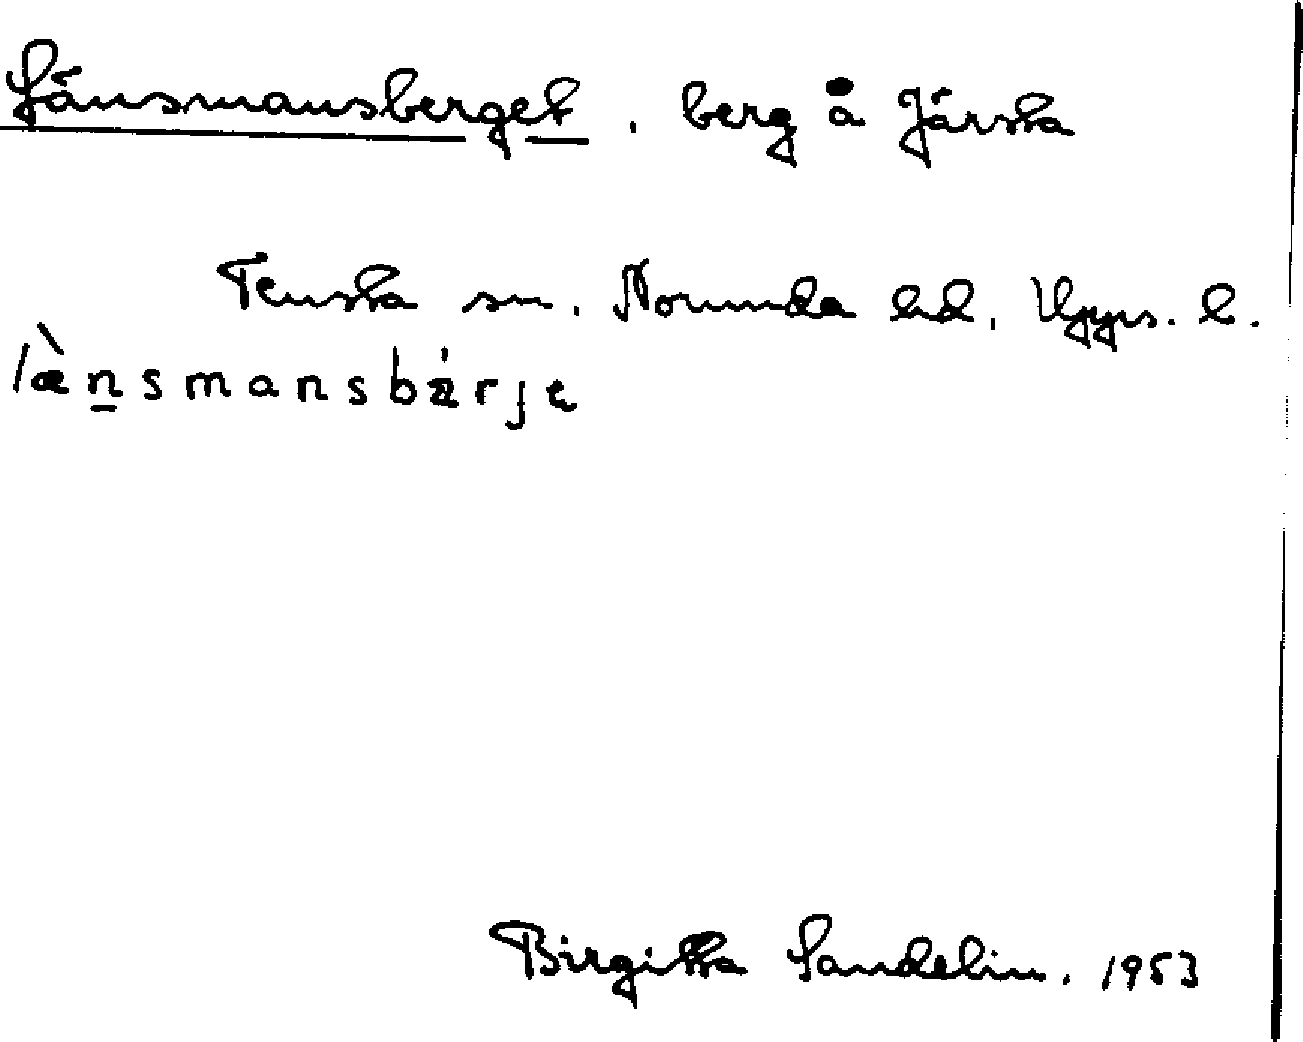 Länsmansberget. berg å Järsta
Tensta sn. Norunda hd. Upps. l.
læ̀nsmansbæ̀rje
Birgitta Sandelin. 1953